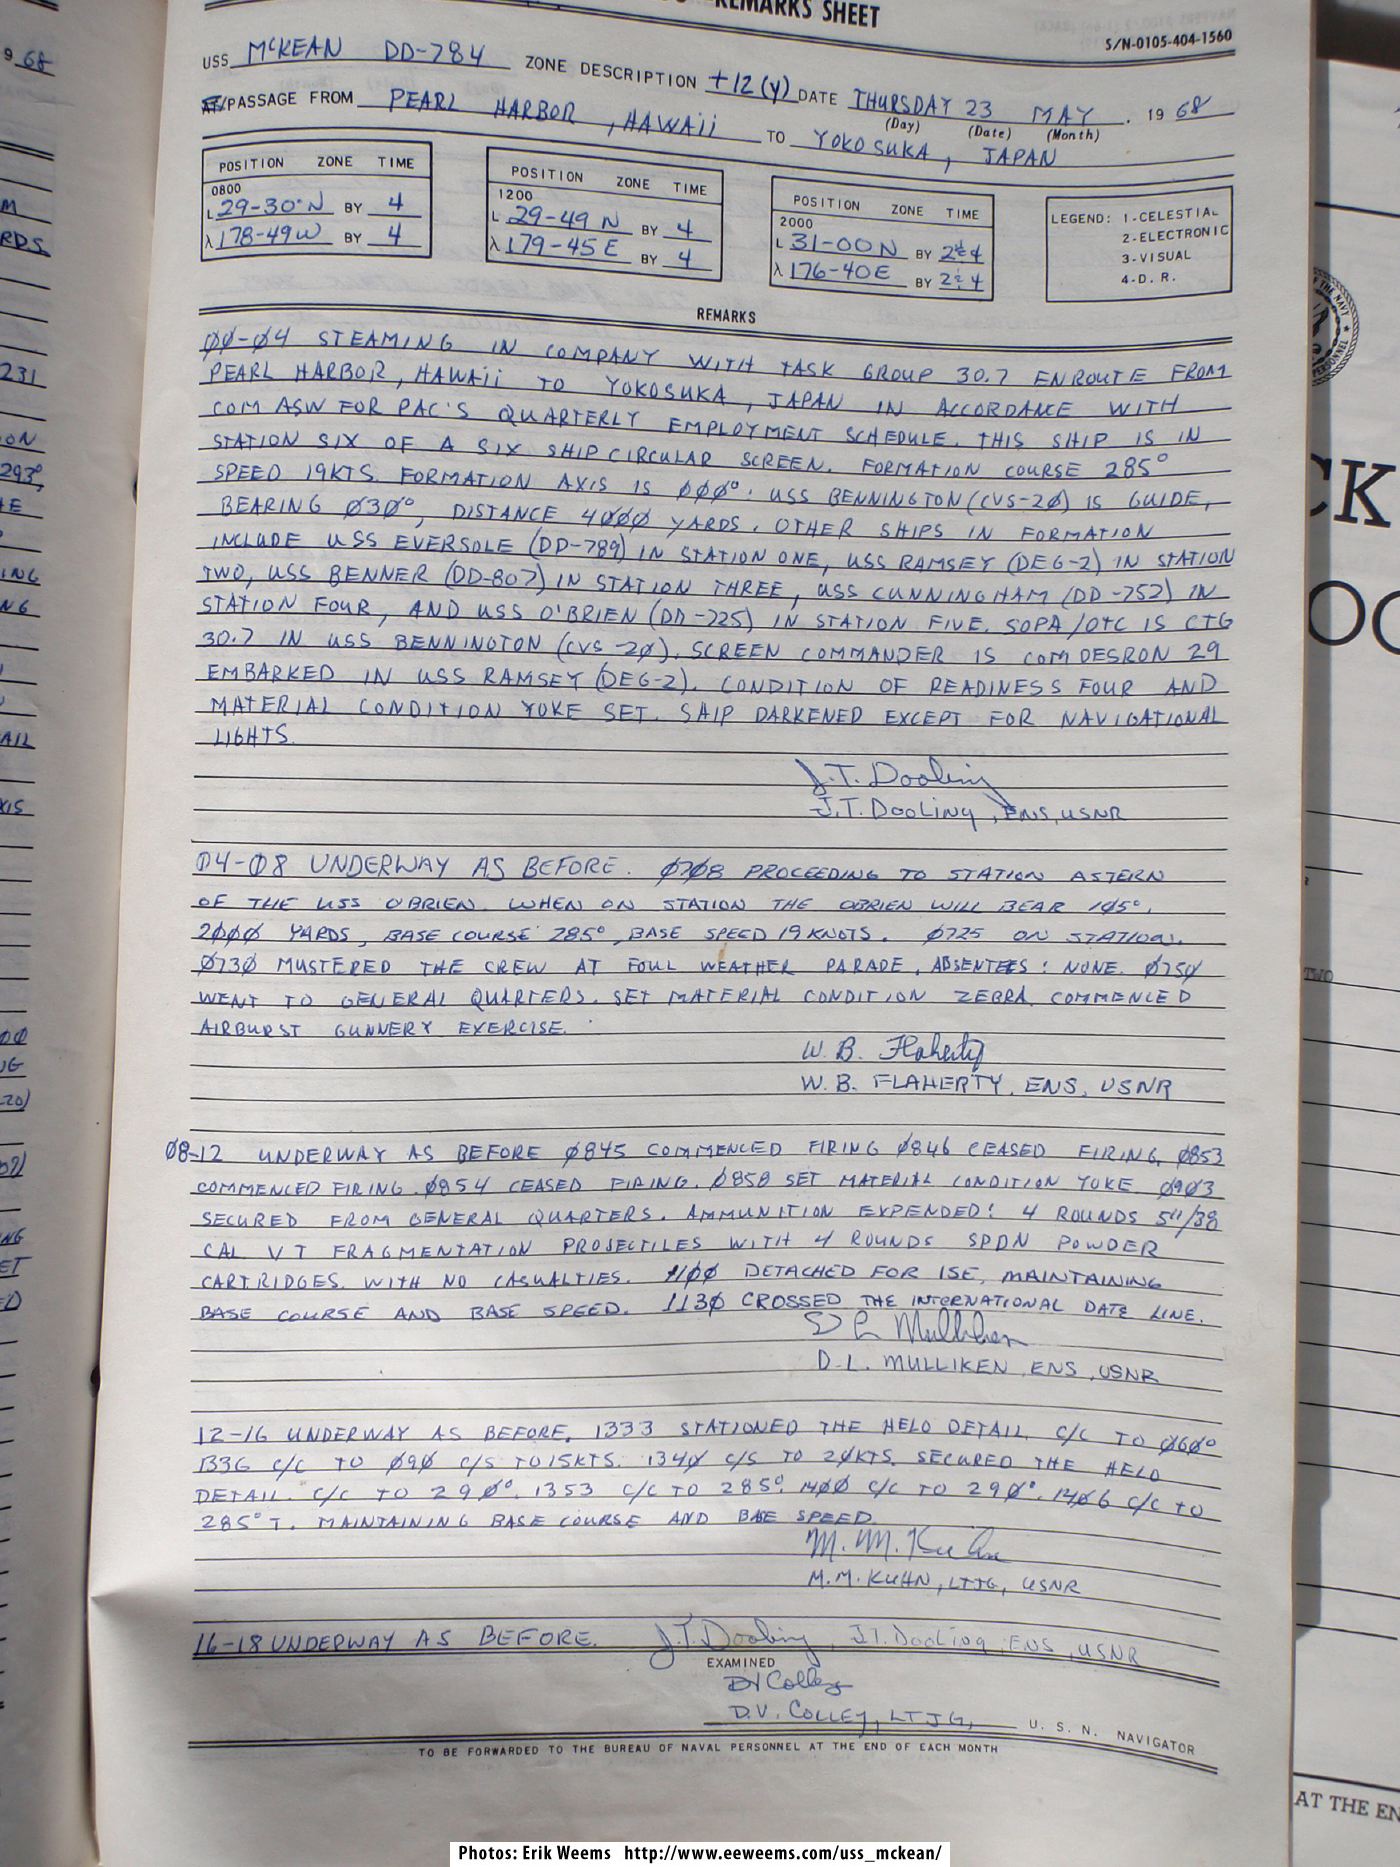 REMARKS SHEET
S/N-0105-404-1560
USS McKEAN DD-784 ZONE DESCRIPTION +12(Y) DATE THURSDAY 23 MAY, 1968
(Day) (Date) (Month)
AT/PASSAGE FROM PEARL HARBOR, HAWAii TO YOKOSUKA, JAPAN
POSITION ZONE TIME
0800
L 29-30'N BY 4
λ 178-49W BY 4
POSITION ZONE TIME
1200
L 29-49 N BY 4
λ 179-45 E BY 4
POSITION ZONE TIME
2000
L 31-00N BY 2&4
λ 176-40E BY 2&4
LEGEND: 1-CELESTIAL
2-ELECTRONIC
3-VISUAL
4-D.R.
REMARKS
00-04 STEAMING IN COMPANY WITH TASK GROUP 30.7 ENROUTE FROM
PEARL HARBOR, HAWAii TO YOKOSUKA, JAPAN IN ACCORDANCE WITH
COM ASW FOR PAC'S QUARTERLY EMPLOYMENT SCHEDULE. THIS SHIP IS IN
STATION SIX OF A SIX SHIP CIRCULAR SCREEN. FORMATION COURSE 285°
SPEED 19KTS. FORMATION AXIS IS 000°. USS BENNINGTON (CVS-20) IS GUIDE,
BEARING 030°, DISTANCE 4000 YARDS. OTHER SHIPS IN FORMATION
INCLUDE USS EVERSOLE (DD-789) IN STATION ONE, USS RAMSEY (DEG-2) IN STATION
TWO, USS BENNER (DD-807) IN STATION THREE, USS CUNNINGHAM (DD-752) IN
STATION FOUR, AND USS O'BRIEN (DD-725) IN STATION FIVE. SOPA/OTC IS CTG
30.7 IN USS BENNINGTON (CVS-20). SCREEN COMMANDER IS COMDESRON 29
EMBARKED IN USS RAMSEY (DEG-2). CONDITION OF READINESS FOUR AND
MATERIAL CONDITION YOKE SET. SHIP DARKENED EXCEPT FOR NAVIGATIONAL
LIGHTS.
J.T. Dooling
J.T. DOOLiNg, ENS, USNR
04-08 UNDERWAY AS BEFORE. 0708 PROCEEDING TO STATION ASTERN
OF THE USS O'BRIEN. WHEN ON STATION THE OBRIEN WILL BEAR 105°,
2000 YARDS, BASE COURSE 285°, BASE SPEED 19 KNOTS. 0725 ON STATION.
0730 MUSTERED THE CREW AT FOUL WEATHER PARADE. ABSENTEES: NONE. 0750
WENT TO GENERAL QUARTERS. SET MATERIAL CONDITION ZEBRA. COMMENCED
AIRBURST GUNNERY EXERCISE.
W. B. Flaherty
W. B. FLAHERTY, ENS, USNR
08-12 UNDERWAY AS BEFORE 0845 COMMENCED FIRING 0846 CEASED FIRING. 0853
COMMENCED FIRING. 0854 CEASED FIRING. 0858 SET MATERIAL CONDITION YOKE. 0903
SECURED FROM GENERAL QUARTERS. AMMUNITION EXPENDED: 4 ROUNDS 5"/38
CAL VT FRAGMENTATION PROJECTILES WITH 4 ROUNDS SPDN POWDER
CARTRIDGES. WITH NO CASUALTIES. 1100 DETACHED FOR ISE, MAINTAINING
BASE COURSE AND BASE SPEED. 1130 CROSSED THE INTERNATIONAL DATE LINE.
D L Mulliken
D. L. MULLIKEN, ENS, USNR
12-16 UNDERWAY AS BEFORE. 1333 STATIONED THE HELO DETAIL. C/C TO 060°
1336 C/C TO 090 C/S TO 15KTS. 1340 C/S TO 20KTS. SECURED THE HELO
DETAIL. C/C TO 290°. 1353 C/C TO 285°. 1400 C/C TO 290°. 1406 C/C TO
285° T. MAINTAINING BASE COURSE AND BASE SPEED.
M. M. Kuhn
M.M. KUHN, LTJG, USNR
16-18 UNDERWAY AS BEFORE. J.T. Dooling, J.T. DOOLiNg, ENS, USNR
EXAMINED
DV Colley
D.V. COLLEY, LTJG, U. S. N. NAVIGATOR
TO BE FORWARDED TO THE BUREAU OF NAVAL PERSONNEL AT THE END OF EACH MONTH
AT THE EN
TWO
Photos: Erik Weems http://www.eeweems.com/uss_mckean/